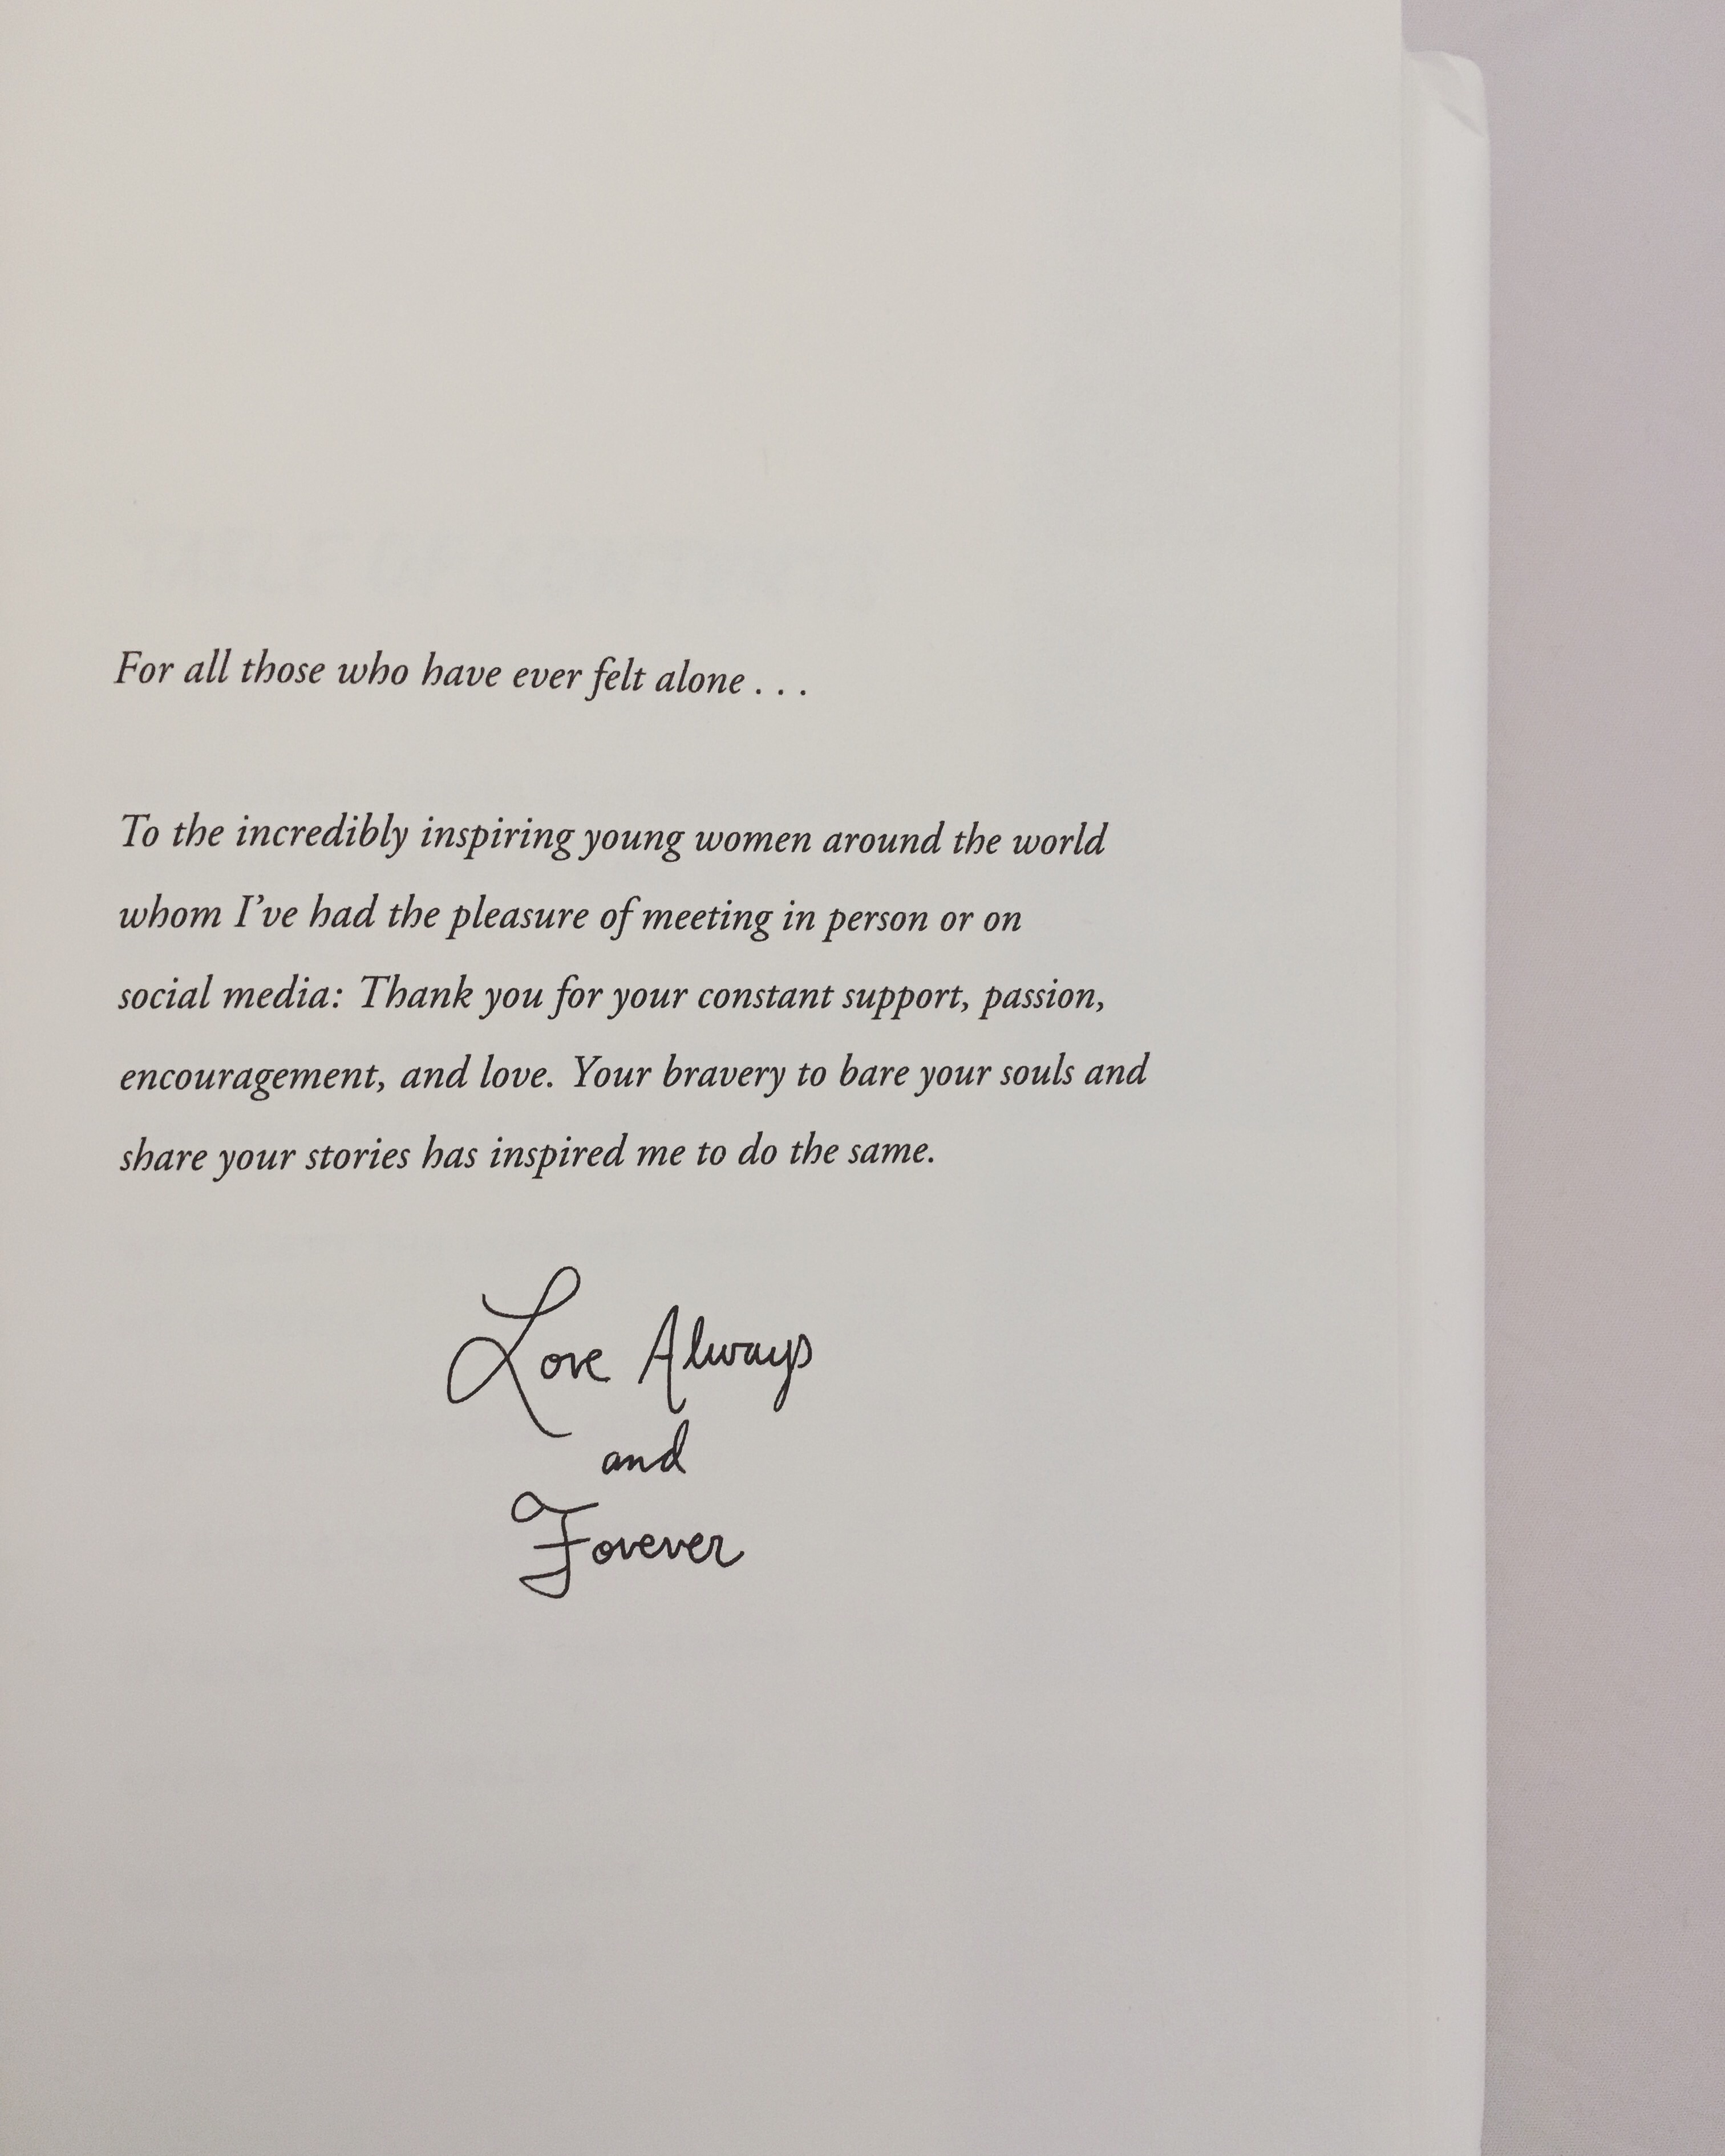 For all those who have ever felt alone . . .
To the incredibly inspiring young women around the world
whom I've had the pleasure of meeting in person or on
social media: Thank you for your constant support, passion,
encouragement, and love. Your bravery to bare your souls and
share your stories has inspired me to do the same.
Love Always
and
Forever